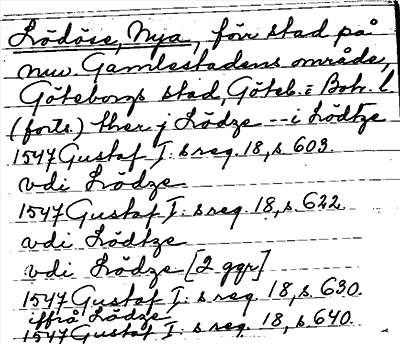 Lödöse, Nya, förr stad på
nuv. Gamlestadens område,
Göteborgs stad, Göteb. = Boh. l
(forts.) ther j Lödze -- i Lödtze
1547 Gustaf I: s reg. 18, s. 603.
vdi Lödze
1547 Gustaf I: s reg. 18, s. 622
vdi Lödtze
vdi Lödze [2 ggr]
1547 Gustaf I: s reg. 18, s. 630.
iffrå Lödze
1547 Gustaf I: s reg. 18, s. 640.